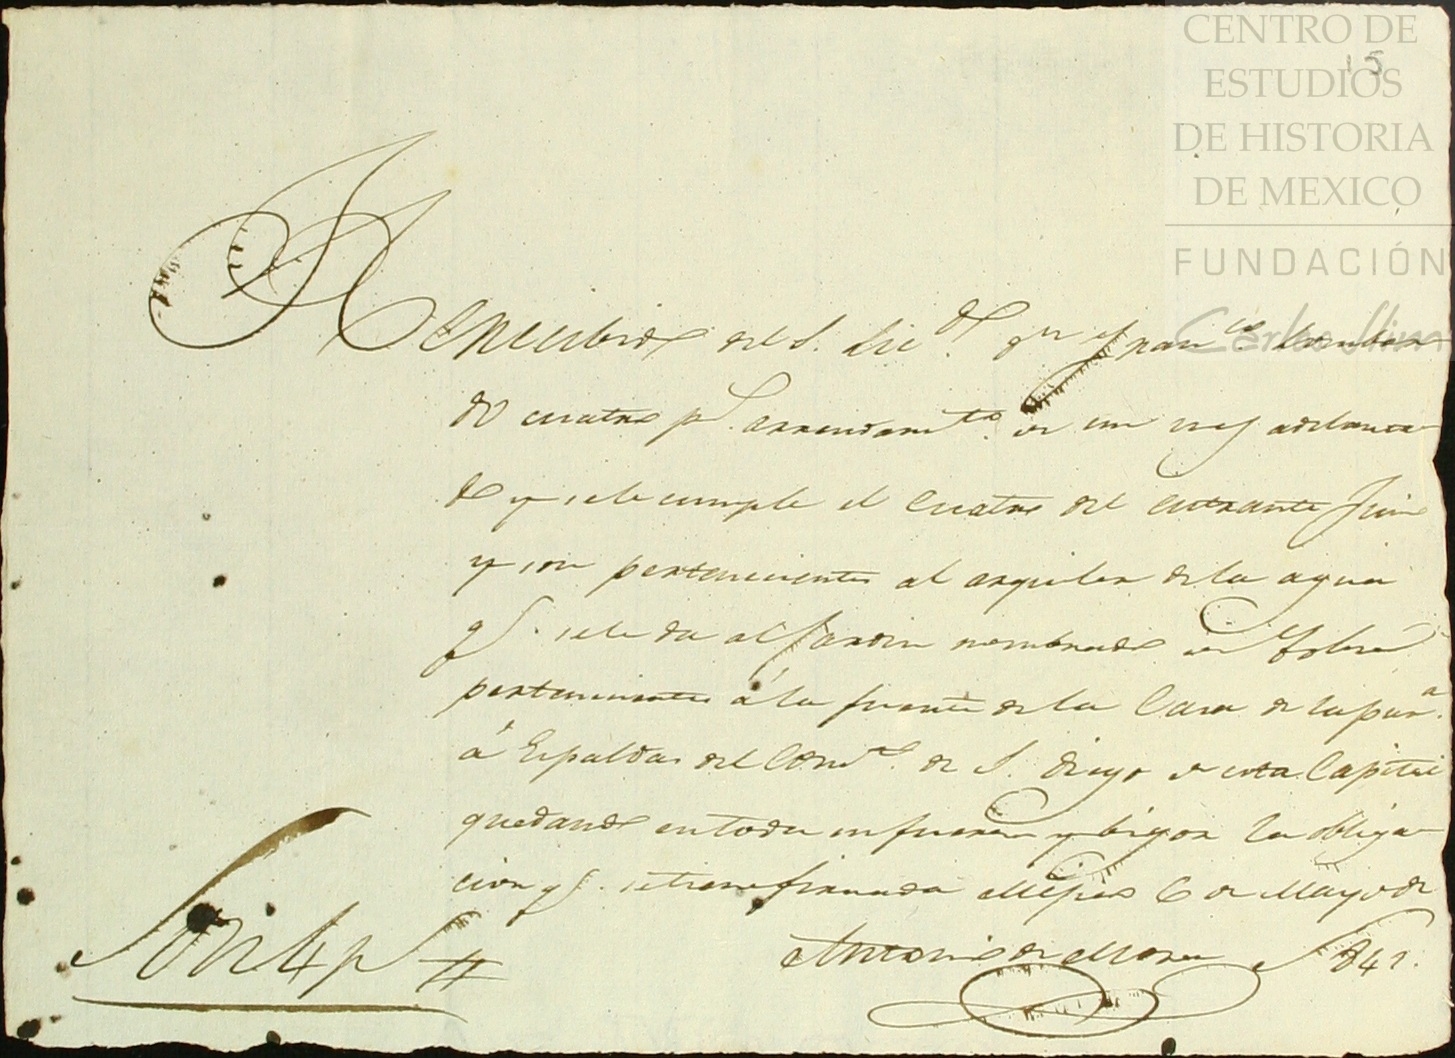 CENTRO DE
ESTUDIOS
DE HISTORIA
DE MEXICO
FUNDACIÓN
Carlos Slim
15
del S. Lic.do Dn Franco Lombar
do cuatro ps. arrendamto de un mes adelanta
do y se le cumple el cuatro del entrante Junio
y son pertenecientes al arquiler de la agua
qe. se le da al Jardin nombrado de
perteneciente á la fuente de la Casa de
á Espaldas del Convto. de S. Diego de esta Capital
quedando en toda su fuerza y bigor la obliga
cion qe. se tiene firmada Mejico 6 de Mayo de
Antonio de Mora 1841.
Son 4 ps